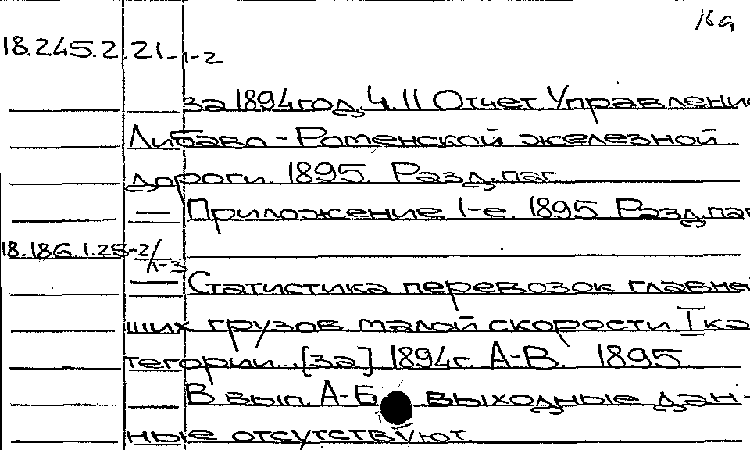 16а
18.245.2.21-1-2
за 1894 год. Ч. II Отчет Управлени
Либаво-Роменской железной
дороги. 1895. Разд. паг.
— Приложение 1-е. 1895. Разд. паг
18.186.1.25-2/1-3
— Статистика перевозок главней
ших грузов малой скорости I ка
тегории. [за] 1894 г. А-В. 1895
В вып. А-Б выходные дан-
ные отсутствуют